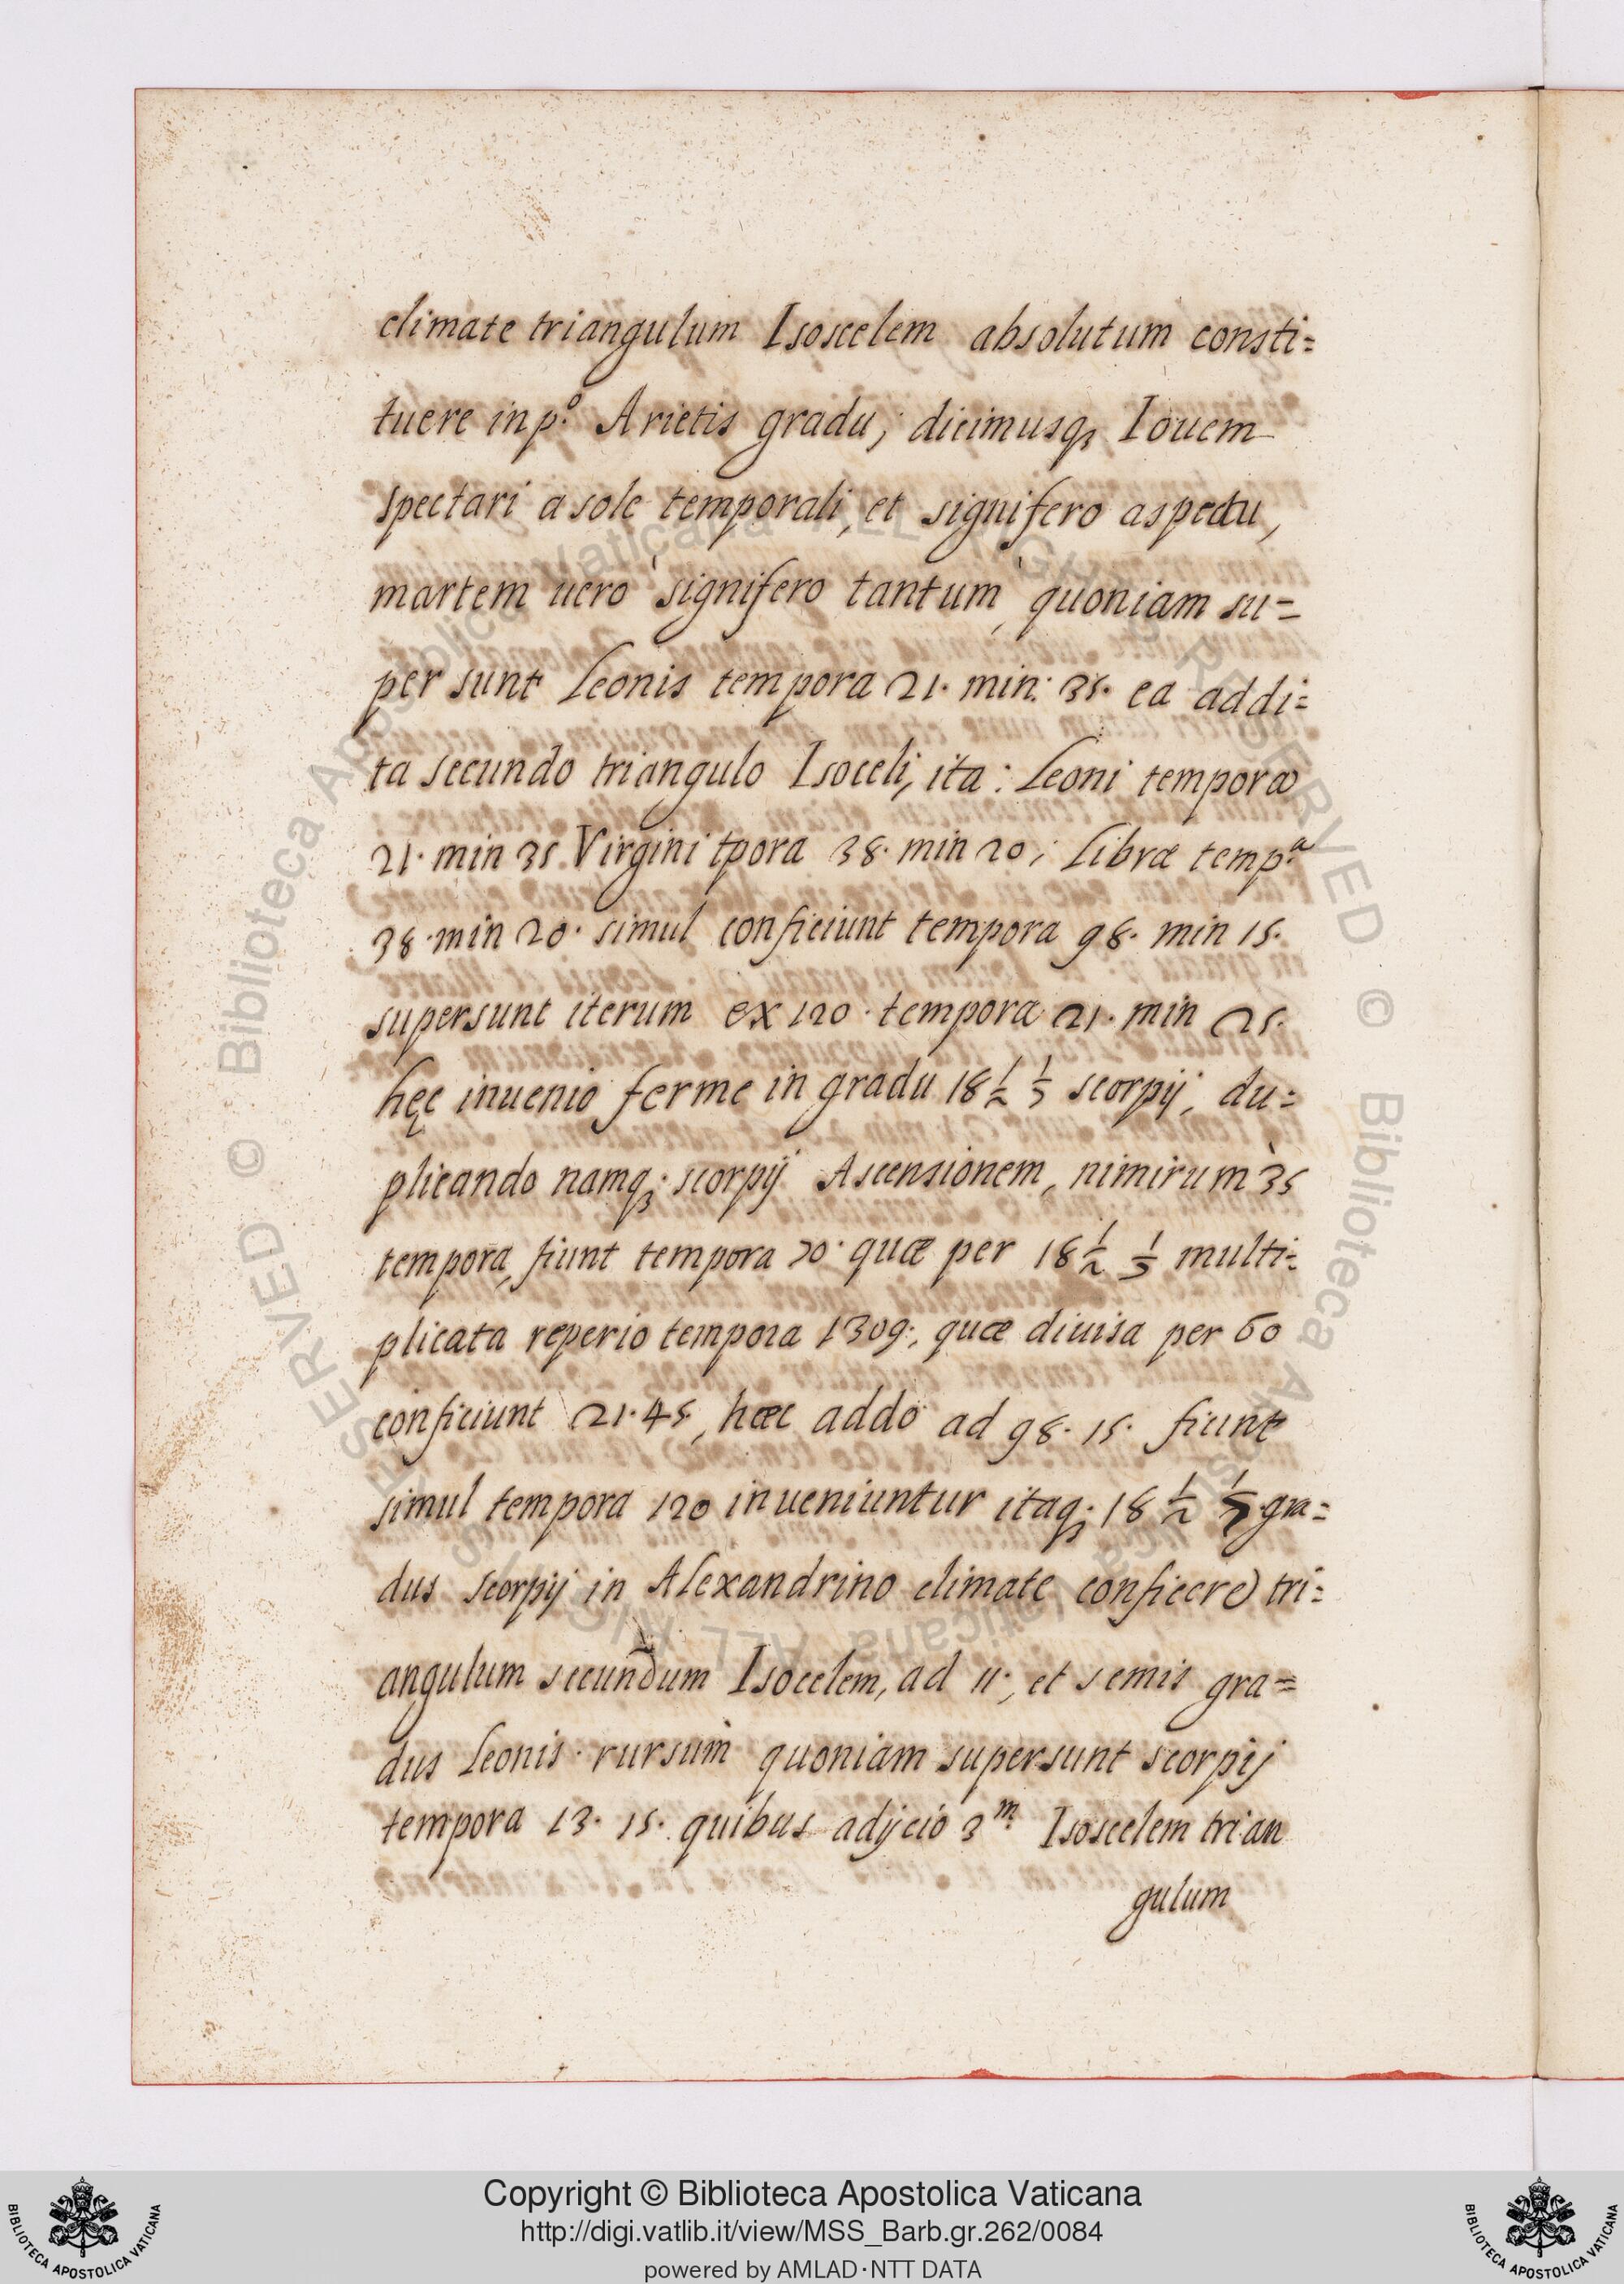 climate triangulum Isoscelem absolutum consti=
tuere in pº. Arietis gradu; dicimusq; Iouem
spectari a sole temporali, et signifero aspectu,
martem uero signifero tantum, quoniam su=
per sunt Leonis tempora 21. min: 35. ea addi=
ta secundo triangulo Isoceli, ita: Leoni tempora
21. min 35. Virgini tpora 38. min 20; Libræ temp.ª
38. min 20. simul conficiunt tempora 98. min 15.
supersunt iterum ex 120. tempora 21. min 25.
hęc inuenio ferme in gradu 18 1/2 1/5 scorpij, du=
plicando namq; scorpij Ascensionem, nimirum 35
tempora, fiunt tempora 70. quæ per 18 1/2 1/5 multi=
plicata reperio tempora 1309:, quæ diuisa per 60
conficiunt 21.45, hæc addo ad 98. 15. fiunt
simul tempora 120 inueniuntur itaq; 18 1/2 gra=
dus scorpij in Alexandrino climate conficere tri=
angulum secundum Isocelem, ad 11., et semis gra=
dus Leonis. rursum quoniam supersunt scorpij
tempora 13. 15. quibus adijcio 3.m Isoscelem trian
gulum
© Biblioteca Apostolica Vaticana ALL RIGHTS RESERVED
© Biblioteca Apostolica Vaticana ALL RIGHTS RESERVED
Copyright © Biblioteca Apostolica Vaticana
http://digi.vatlib.it/view/MSS_Barb.gr.262/0084
powered by AMLAD·NTT DATA
BIBLIOTECA APOSTOLICA VATICANA
BIBLIOTECA APOSTOLICA VATICANA